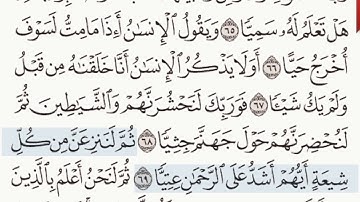 هَلْ تَعْلَمُ لَهُۥ سَمِيًّا ٦٥ وَيَقُولُ ٱلْإِنسَٰنُ أَءِذَا مَا مِتُّ لَسَوْفَ
أُخْرَجُ حَيًّا ٦٦ أَوَلَا يَذْكُرُ ٱلْإِنسَٰنُ أَنَّا خَلَقْنَٰهُ مِن قَبْلُ
وَلَمْ يَكُ شَيْـًٔا ٦٧ فَوَرَبِّكَ لَنَحْشُرَنَّهُمْ وَٱلشَّيَٰطِينَ ثُمَّ
لَنُحْضِرَنَّهُمْ حَوْلَ جَهَنَّمَ جِثِيًّا ٦٨ ثُمَّ لَنَنزِعَنَّ مِن كُلِّ
شِيعَةٍ أَيُّهُمْ أَشَدُّ عَلَى ٱلرَّحْمَٰنِ عِتِيًّا ٦٩ ثُمَّ لَنَحْنُ أَعْلَمُ بِٱلَّذِينَ